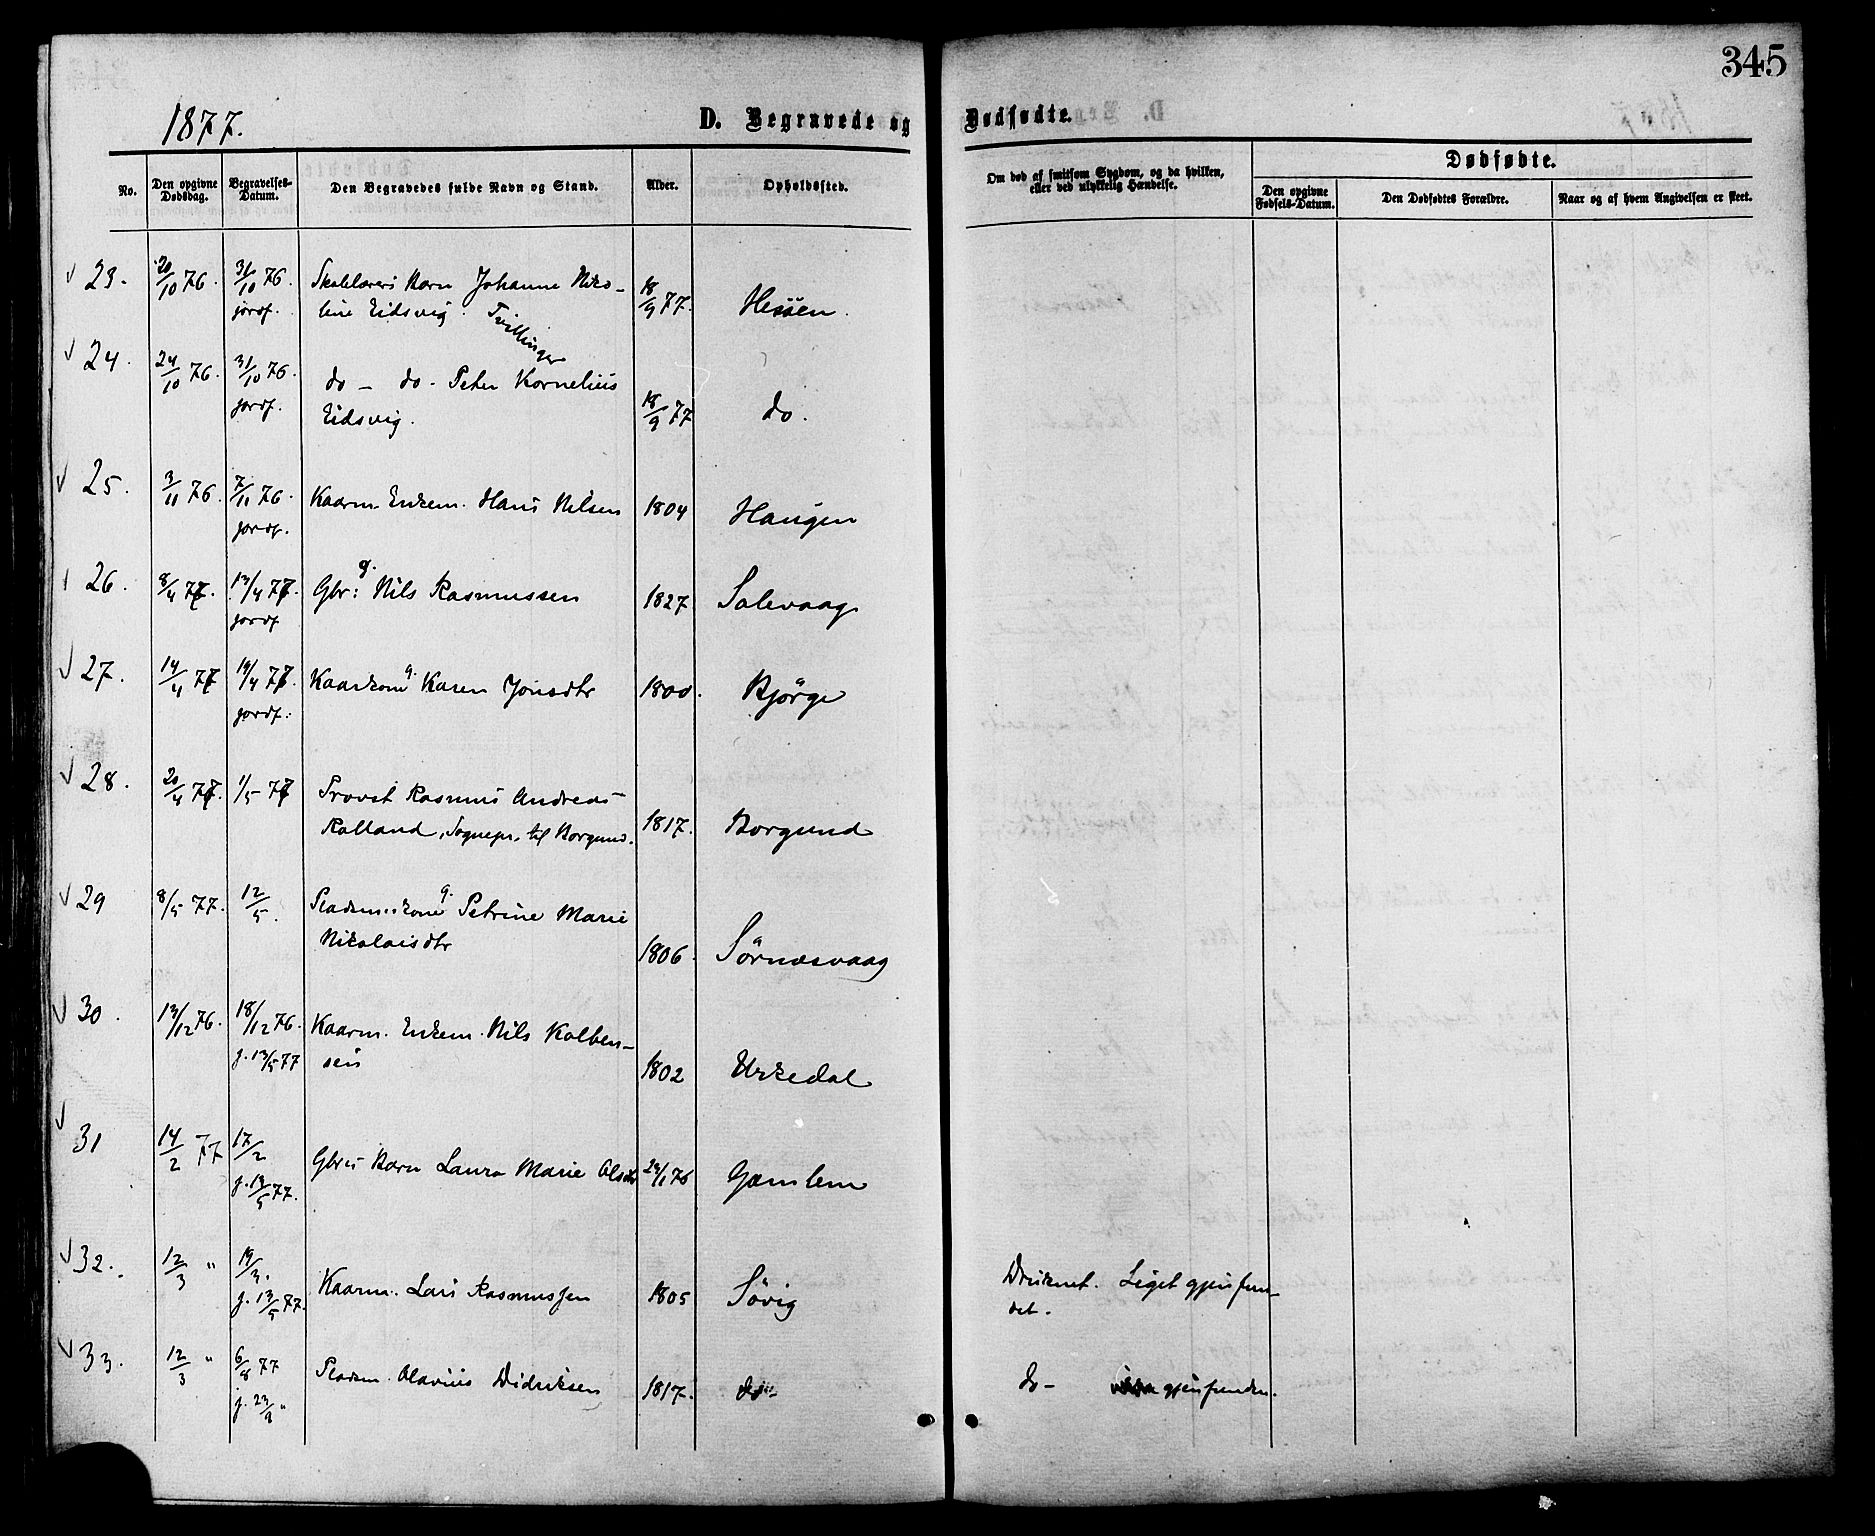 345
1877.
D. Begravede og Dødfødte.
No.
Den opgivne Dødsdag.
Begravelses-Datum.
Den Begravedes fulde Navn og Stand.
Alder.
Opholdssted.
Om død af smitsom Sygdom, og da hvilken, eller ved ulykkelig Hændelse.
Dødfødte.
Den opgivne Fødsels-Datum.
Den Dødfødtes Forældre.
Naar og af hvem Angivelsen er skeet.
23. 20/10 76. 31/10 76. Skolelærers Barn Johanne Niko- 18/9 77. Hessen.
jordf. line Eidsvig. Tvillinger
24. 24/10 76. 31/10 76. do - do. Peter Kornelius 18/9 77 do.
jordf. Eidsvig.
25. 3/11 76. 7/11 76. Kaarm. Enkem. Hans Nilsen 1804 Haugen
jordf.
26. 8/4 77. 13/4 77. Gbr: g. Nils Rasmussen 1827 Solevaag
jordf
27. 14/4 77 19/4 77. Kaarkone g. Karen Jonsdtr 1800. Bjørge
jordf.
28. 20/4 77. 1/5 77 Provst Rasmus Andreas
Rolland, Sognepr. til Borgund. 1817. Borgund
29 8/5 77. 12/5. Pladsm.kone g. Petrine Marie
Nikolaisdtr 1806. Sørnesvaag
30. 13/12 76. 18/12 76. Kaarm. Enkem. Nils Kolben-
j. 13/5 77 sen 1802 Urkedal
31 14/2 77 17/2 Gbr.s Barn Laura Marie Olsdtr 29/1 76 Gamlem
j. 13/5 77.
32. 12/3 " 19/3. Kaarm. Lars Rasmussen 1805 Søvig Druknet. Liget gjenfun-
j. 13/5 77. det.
33. 12/3 " 6/8 77 Pladsm. Olavius Didriksen 1817. do- do- gjenfunden.
j. 23/9 "